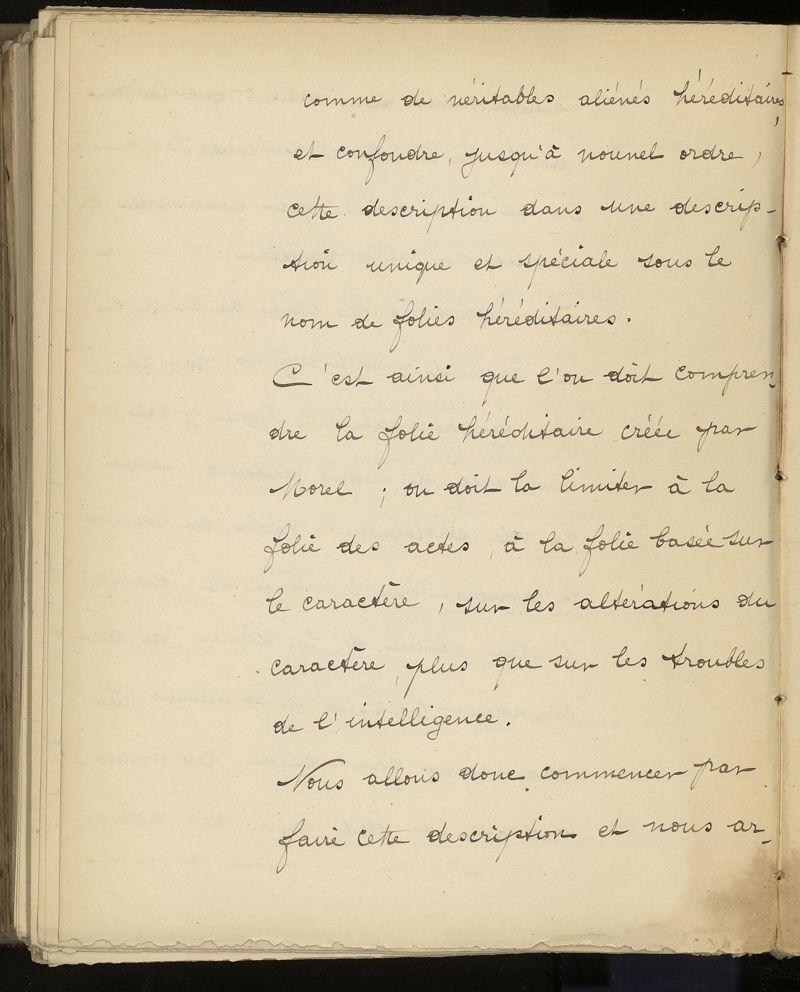 comme de véritables aliénés héréditaires,
et confondre, jusqu'à nouvel ordre,
cette description dans une descrip-
tion unique et spéciale sous le
nom de folies héréditaires.
C'est ainsi que l'on doit compren-
dre la folie héréditaire créée par
Morel ; on doit la limiter à la
folie des actes, à la folie basée sur
le caractère, sur les altérations du
caractère, plus que sur les troubles
de l'intelligence.
Nous allons donc commencer par
faire cette description et nous ar-